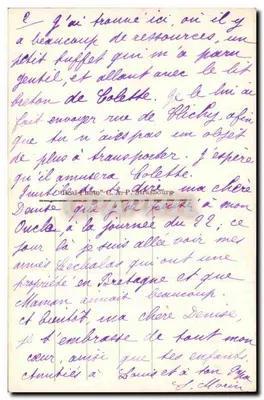 2 J'ai trouvé ici, où il y
a beaucoup de ressources, un
petit buffet qui m'a paru
gentil, et allant avec le lit
breton de Colette. Je le lui ai
fait envoyer rue de Clichy afin
que tu n'aies pas un objet
de plus à transporter. J'espère
qu'il amusera Colette.
Inutile de te dire, ma chère
Denise que j'ai pensé à mon
Oncle à la journée du 22; ce
jour là je suis allée voir mes
amies Lechalas qui ont une
propriété en Bretagne et que
Maman aimait beaucoup.
et bientôt ma chère Denise,
je t'embrasse de tout mon
cœur, ainsi que tes enfants.
Amitiés à Louis et à ton
S. Morin